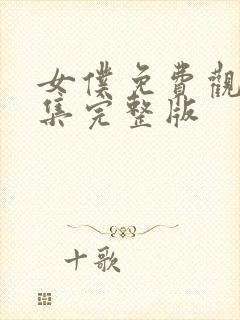 女僕免費觀
集完整版
十歌